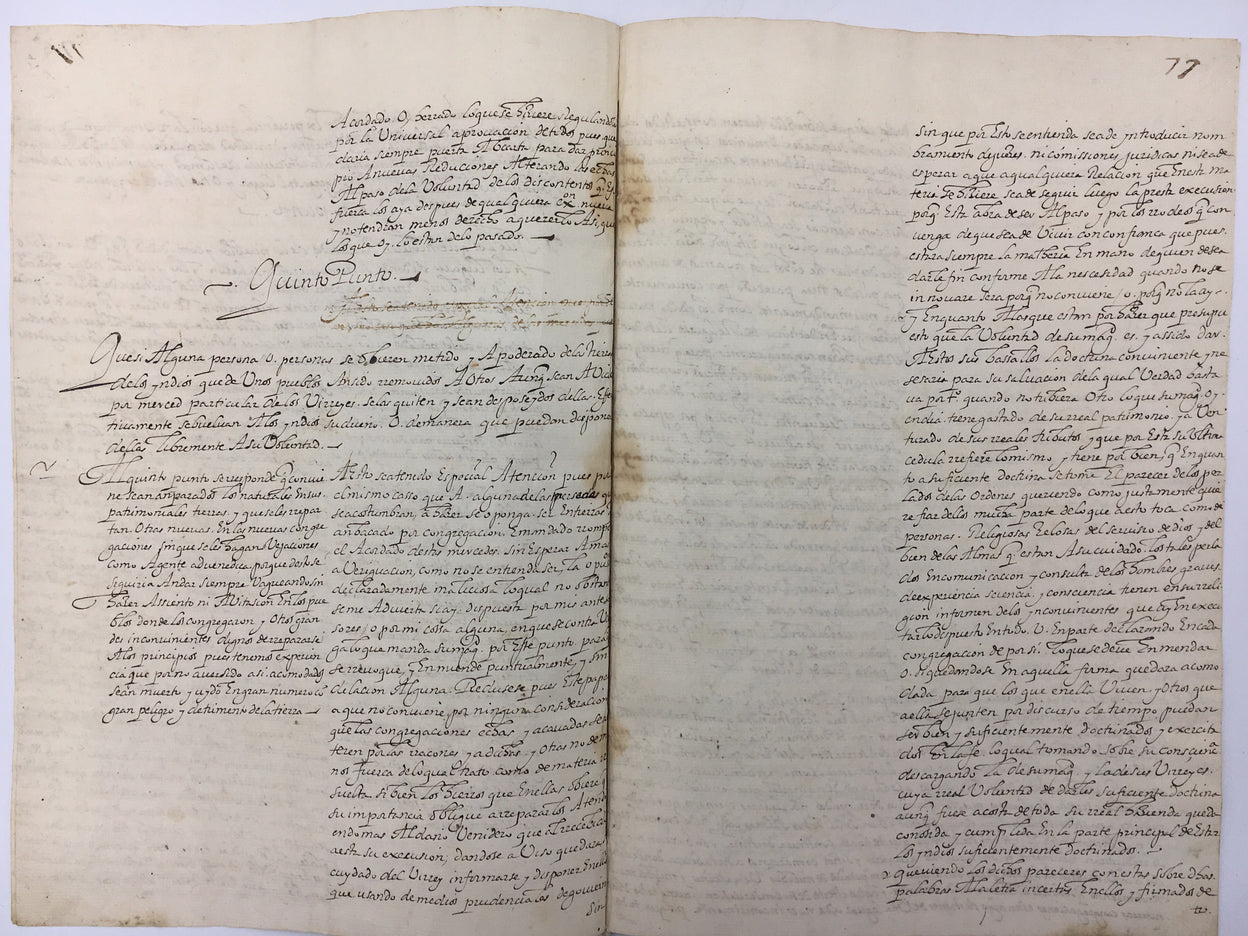 Acordado. O, herrado loquese hiziere Regulandolo
por la Universal aprovacion detodos pues que
daria siempre puerta Abierta para dar princi
pio Anuevas Reduciones Alterando las echas
Alpaso dela Voluntad delos discontentos q Es
fuerça los aya despues dequalquiera con nueva
y notendran menos derecho aquererlo Asi, que
los que oy. lo estan delo pasado.
Quinto Punto.
Quesi Alguna persona O. personas se hubieren metido y Apoderado dela tierra
delos yndios quede Unos pueblos Ansido rremovidos A Otro Aunq sean
por merced particular delos Virreyes. selas quiten y sean desposeydos dellas. Efec
tivamente sebuelvan Alos yndios sudueño. O. demanera que puedan disponer
dellas libremente A su Voluntad.
Alquinto punto serresponde q convi
ne sean amparados los naturales Ensus
patrimoniales tierras. y queseles repar
tan. Otras nuevas. En las nuevas congre
gaciones sinque seles hagan Vejaciones
como Agente advenediça, porque desto se
seguiria Andar siempre Vagueando sin
haver Assiento ni Avitasion En los pue
blos donde los congregaron y Otros gran
des inconvinientes dignos de rrepararse
A los principios pues tenemos experien
cia que por no aversido asi. acomodados
sean muerto y uydo En gran numero co
gran peligro y detrimento dela tierra
A esto seatenido Espoçial Atencion pues
el mismo casso que A. alguna delas mercedes que
seacostumbran, a hazer se oponga. ser En tierras
an bacado por congregacion. E mandado rromper
el Acordado destas mercedes. Sin Esperar A mas
a Veriguacion, como no se entienda ser, la
declaradamente maliciosa loqual no obstante
seme Advierta si ay. dispuesta por mis antes
sores, o por mi cossa alguna, en que se contra Ve
ga lo que manda sumag. por Este punto para
serrevoque, y Enmiende puntualmente, y sin
dilacion Alguna. Recluisese pues Este papel
a que no conviene, por ninguna consideracion
que las congregaciones echas, y acavadas se al
teren por las rraçones y adichas y Otras no de me
nos fuerca de lo qual trato como de materia rre
suelta. si bien los hierros que En ellas obiere y
su importancia oblique arrepararlos Atendi
endo mas Aldaño Venidero que Al rrecebido
aesta su execusion; dandose a Uiso quedara a
cuydado del Virrey informarse y disponer Enello
que usando de medios prudenciales de gouierno
Sin
77
Sin que por Esto se entienda sea de yntroducir nom
bramiento de jueçes. ni comissiones juridicas ni se a de
esperar a que a qualquiera Relacion que Enesta ma
teria se hiziere sea de seguir luego la presta execusion
porq Esta abra de ser Al paso y por los rrodeos q con
venga de que sea de Vivir con confiança que pues.
estara siempre la matheria En mano de quien desea
darle fin conforme A la nescesidad quando no se
innovare sera porq no conviene / o. porq no la ay.
y En quanto A las que estan por hazer que presupu
esto que la Voluntad de sumag. es. y a ssido dar.
A Estos sus bassallos la doctrina convinente y ne
sesaria para su salvacion de la qual Verdad basta
va par te quando no tubiera Otro lo que sumag. O y
en dia. tiene gastado de su real patrimonio. y a Ven
turado de sus reales tributos y que por Esta su Ultima
cedula refiere lo mismo, y tiene por bien, q En quan
to a suficiente doctrina se tome El parecer de los per
lados de las Ordenes queriendo como justamente quie
re fiar dellos mucha parte de lo que a esto toca como de
personas. Religiosas celosas del serviso de dios y del
bien de las Almas q estan A su cuidado. los tales perla
dos En comunicacion y consulta de los hombres graves.
de experiencia sciencia. y consciencia tienen en su reli
gion informen de los ynconvinientes que ay En execu
tar lo despuesto En todo. U. En parte declarando En cada
congregacion de por si. lo que se deve Enmendar
o. si quedandose En aquella firma quedara acomo
dada para que los que enella Viven y Otros que
a ella se junten por discurso de tiempo puedan
ser bien y suficientemente doctrinados y exercita
dos En la fe. lo qual tomando sobre su consciencia
descargando la de sumag. y la de sus Virreyes.
cuya real Voluntad de darles suficiente doctrina
aunq fuese acosta de toda su real hazienda queda
conosida y cumplida En la parte principal de Estar
los yndios suficientemente doctrinados.
y queviendo los dichos pareceres con estas sobre dhas.
palabras A la letra incertas En ellos y firmados de